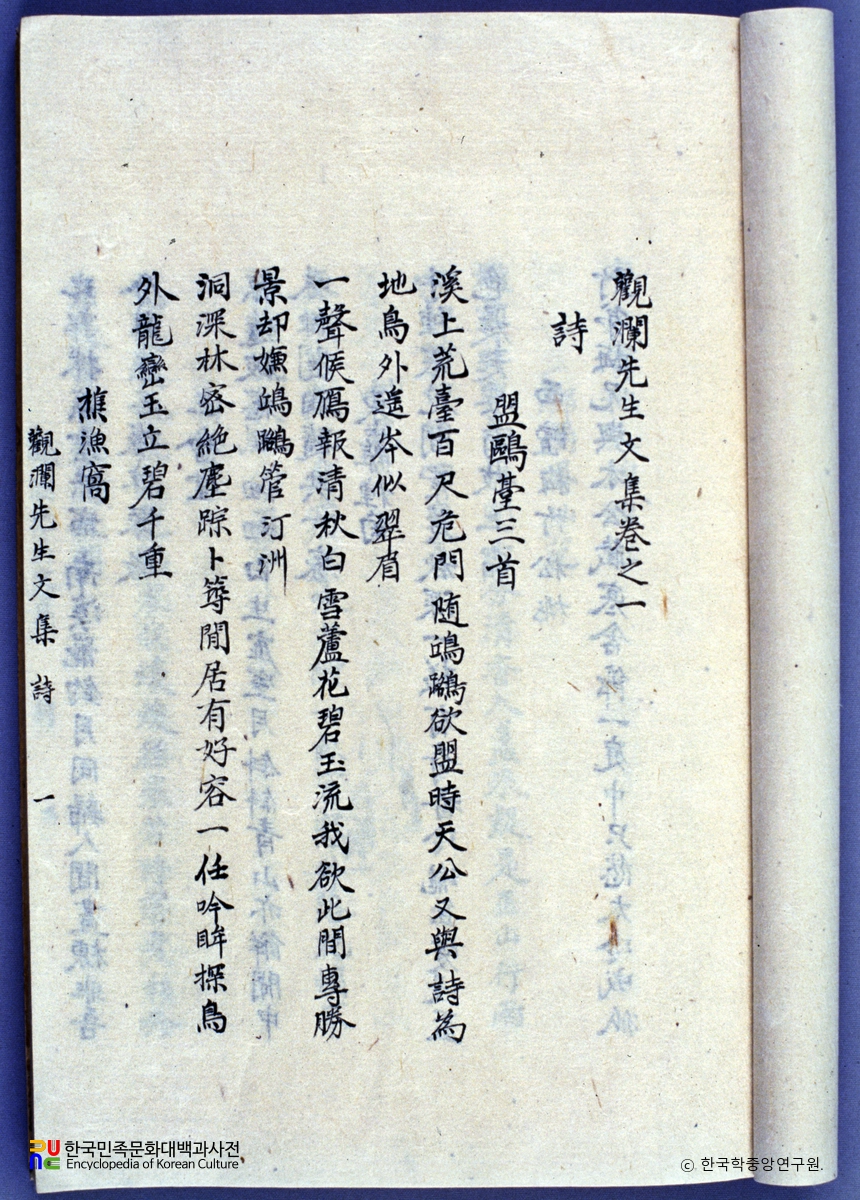 觀瀾先生文集卷之一
詩
盟鷗臺三首
溪上荒臺百尺危門随鴗鷉欲盟時天公又與詩為
地鳥外遥岑似翠眉
一聲候鴈報清秋白雪蘆花碧玉流我欲此間專勝
景却嫌鴗鷉管汀洲
洞深林密絶塵踪卜築閒居有好容一任吟眸探鳥
外龍巒玉立碧千重
樵漁窩
觀瀾先生文集 詩 一
한국민족문화대백과사전
Encyclopedia of Korean Culture
ⓒ 한국학중앙연구원.